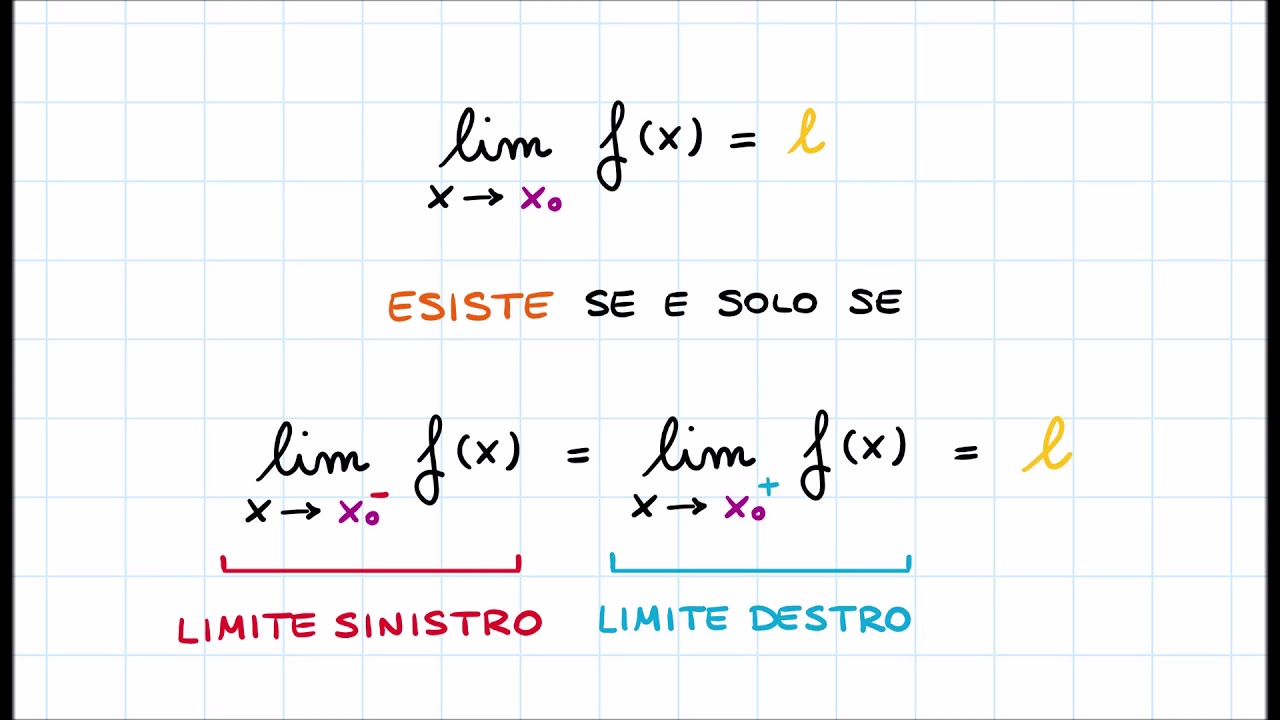 lim f(x) = l
x → x₀
ESISTE SE E SOLO SE
lim f(x) = lim f(x) = l
x → x₀⁻ x → x₀⁺
LIMITE SINISTRO LIMITE DESTRO